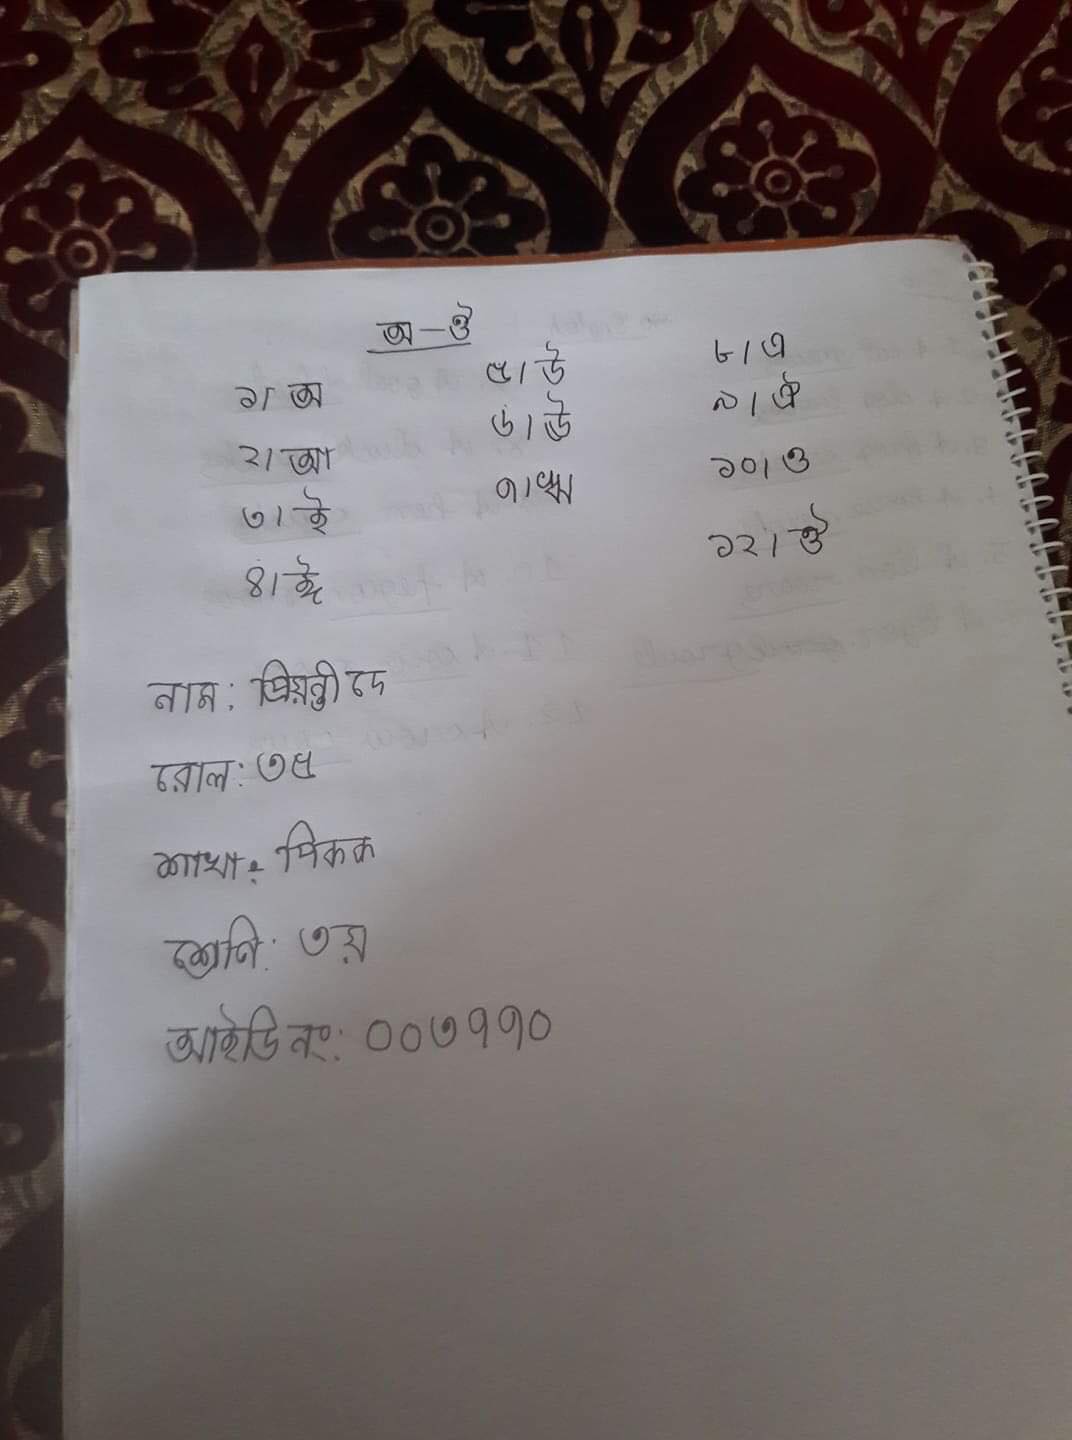 অ-ঔ
১। অ
২। আ
৩। ই
৪। ঈ
৫। উ
৬। ঊ
৭। ঋ
৮। এ
৯। ঐ
১০। ও
১২। ঔ
নাম: প্রিয়ন্তী দে
রোল: ৩৫
শাখা: পিকক
শ্রেনি: ৩য়
আইডি নং: ০০৩৭৭০